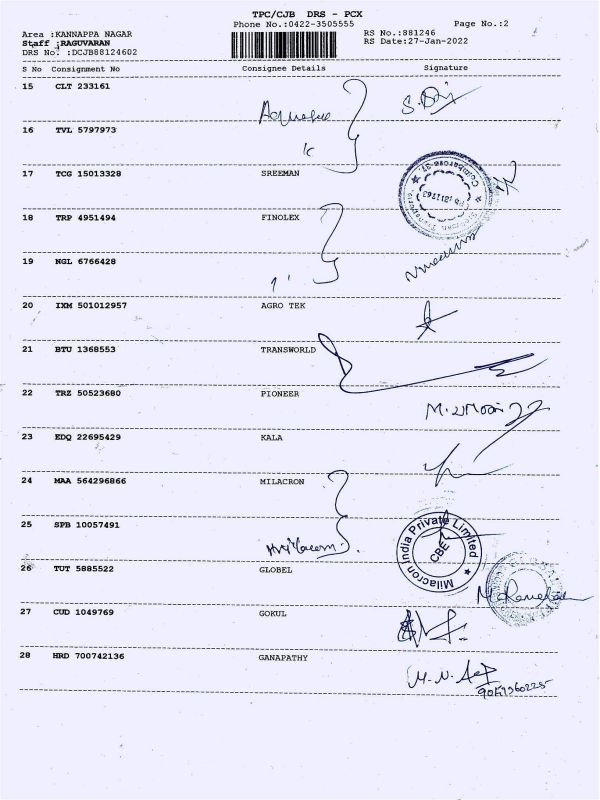 TPC/CJB DRS - PCX
Phone No.:0422-3505555
Page No.:2
Area :KANNAPPA NAGAR
RS No.:881246
Staff :RAGUVARAN
RS Date:27-Jan-2022
DRS No. :DCJB88124602
S No Consignment No Consignee Details Signature
15 CLT 233161
16 TVL 5797973
17 TCG 15013328 SREEMAN
18 TRP 4951494 FINOLEX
19 NGL 6766428
20 IXM 501012957 AGRO TEK
21 BTU 1368553 TRANSWORLD
22 TRZ 50523680 PIONEER
23 EDQ 22695429 KALA
24 MAA 564296866 MILACRON
25 SPB 10057491
Milacron India Private Limited
CBE
26 TUT 5885522 GLOBEL
27 CUD 1049769 GOKUL
28 HRD 700742136 GANAPATHY